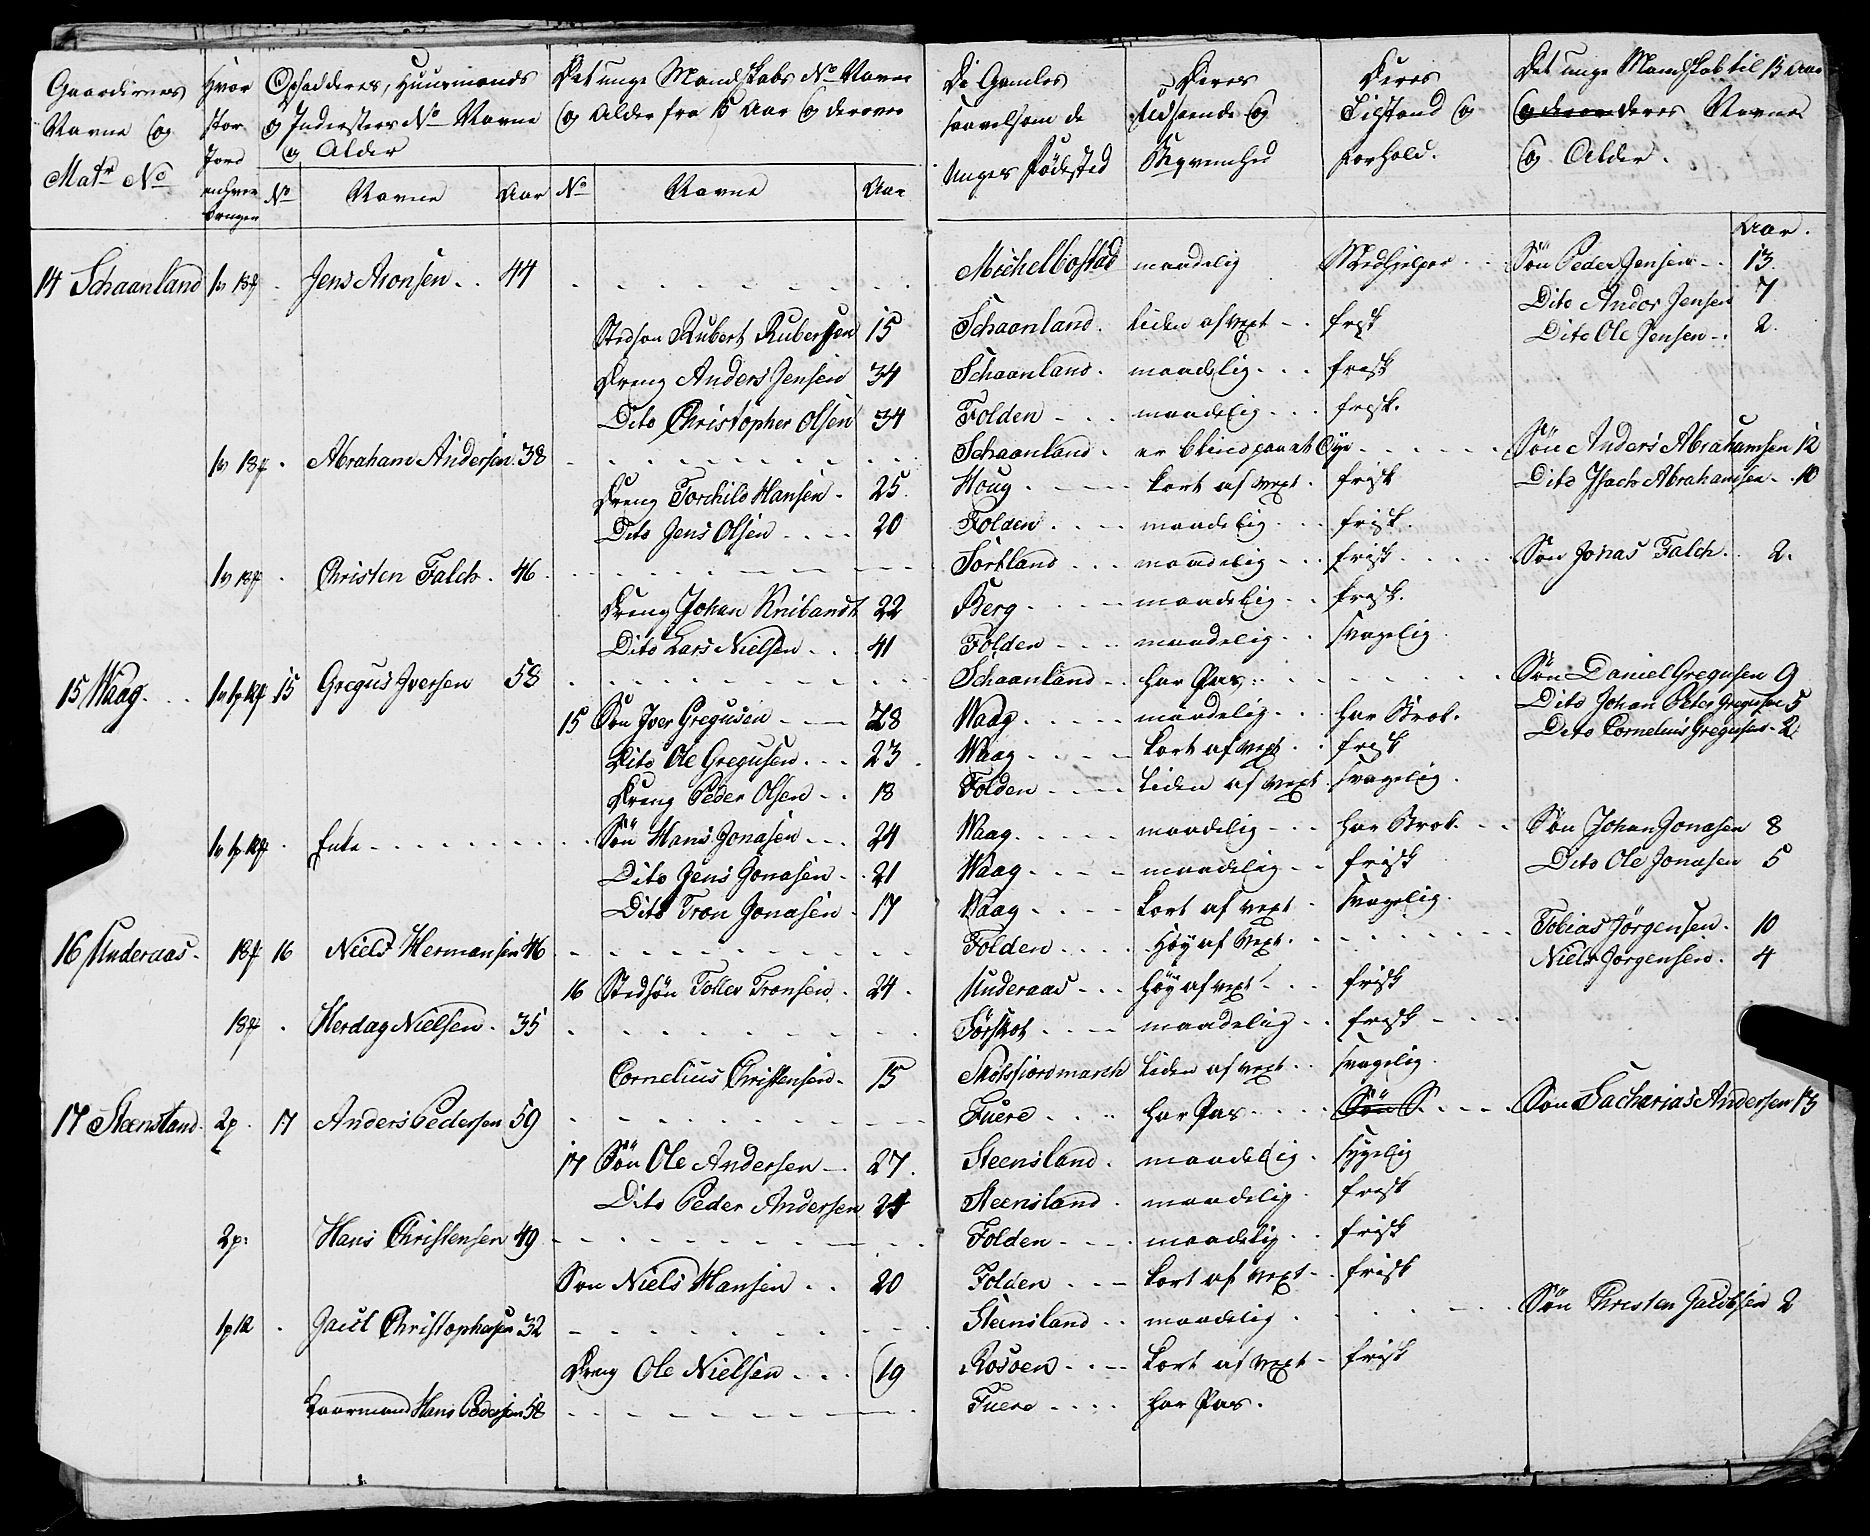 Gaardernes Navne og Matr No | Hvor stor Jord enhver bruger | Opsadderes, Huusmænds og Indersters No Navne og Alder | Det unge Mandskabs No Navne og Alder fra 15 Aar og derover | De Gamles saavelsom de Unges Fødested | Deres Udseende og | Deres Tilstand og Forhold. | Det unge Mandskab til 15 Aar Deres Navne og Alder.
No | Navne | Aar | No | Navne | Aar | Aar.
14 Schaanland | 1v 18 | Jens Aronsen | 44 | Michelbostad | maadelig | Medhjelper | Søn Peder Jensen | 13
Dito Andor Jensen | 7
Stedsøn Rubert Rubertsen | 15 | Schaanland | Liden af vext | frisk | Dito Ole Jensen | 2
Dreng Anders Jensen | 34 | Schaanland | maadelig | frisk
Dito Christopher Olsen | 34 | Folden | maadelig | frisk
1v 18 | Abraham Andersen | 38 | Schaanland | er blind paa et Øye | Søn Anders Abrahamsen | 12
Dreng Torchild Hansen | 25 | Houg | kort af vext | frisk | Dito Isach Abrahamsen | 10
Dito Jens Olsen | 20 | Folden | maadelig | frisk
1v 18 | Christen Falch | 46 | Sortland | maadelig | frisk | Søn Jonas Falch | 2
Dreng Johan | 22 | Berg | maadelig | frisk
Dito Lars Nielsen | 41 | Folden | maadelig | svagelig
15 Waag | 1v 1p 12 | 15 | Gregus Iversen | 58 | Schaanland | har Pas | Søn Daniel Gregusen | 9
15 | Søn Iver Gregusen | 28 | Waag | maadelig | har Brok | Dito Johan Peter Gregusen | 5
Dito Ole Gregusen | 23 | Waag | kort af vext | frisk | Dito Cornelius Gregusen | 2
Dreng Peder Olsen | 18 | Folden | Liden af vext | svagelig
1v 1p 12 | Enke | Søn Hans Jonasen | 24 | Waag | maadelig | har Brok | Søn Johan Jonasen | 8
Dito Jens Jonasen | 21 | Waag | maadelig | frisk | Dito Ole Jonasen | 5
Dito Tron Jonasen | 17 | Waag | kort af vext | svagelig
16 Underaas | 18 | 16 | Niels Hermansen | 46 | Folden | Høy af Vext | Tobias Jørgensen | 10
16 | Stedsøn Toller Tronsen | 24 | Underaas | Høy af vext | frisk | Niels Jørgensen | 4
18 | Herdag Nielsen | 35 | maadelig | frisk
Cornelius Christensen | 15 | Liden af vext | svagelig
17 Steensland | 2p | 17 | Anders Pedersen | 59 | Fuere | har Pas | Søn S | Søn Sacharias Andersen | 13
17 | Søn Ole Andersen | 27 | Steensland | maadelig | sygelig
Dito Peder Andersen | 24 | Steensland | maadelig | frisk
2p | Hans Christensen | 49 | Folden | maadelig | frisk
Søn Niels Hansen | 20 | Folden | kort af vext | frisk
1p 12 | Jacob Christophersen | 32 | Steensland | maadelig | Søn Christen Jacobsen | 2
Dreng Ole Nielsen | 19 | kort af vext | frisk
Kaarmand Hans Pedersen | 58 | Fuere | har Pas